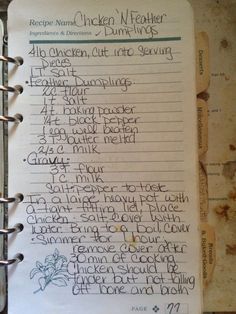 Recipe Name Chicken 'N Feather
Ingredients & Directions Dumplings
4 lb chicken, cut into serving
pieces
1 T salt
• Feather Dumplings
2 C flour
1 t salt
4 t baking powder
1/4 t black pepper
1 egg well beaten
3 T butter melted
2/3 C milk
• Gravy
3 T flour
1 C milk
Salt + pepper to taste
In a large heavy pot with
a tight fitting lid, place
Chicken + salt. Cover with
water. Bring to a boil. Cover
Simmer for 1 hour
remove cover after
30 min of cooking
Chicken should be
tender but not falling
off bone and broth
PAGE 77
Baked Goods